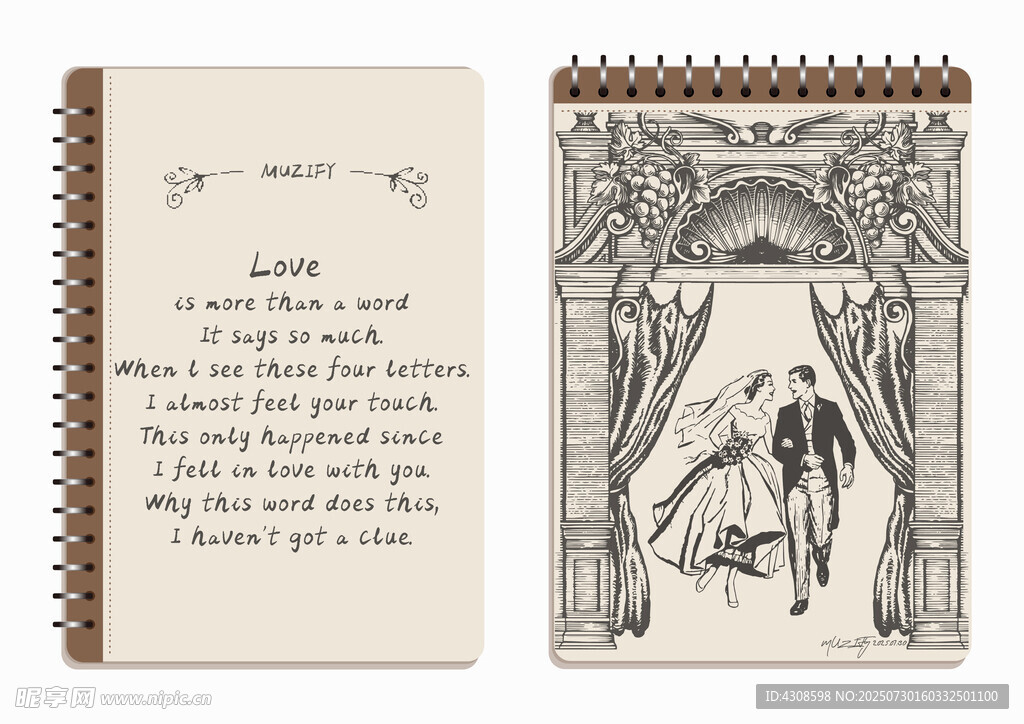 MUZIFY
Love
is more than a word
It says so much.
When l see these four letters.
I almost feel your touch.
This only happened since
I fell in love with you.
Why this word does this,
I haven't got a clue.
昵享网 www.nipic.cn
ID:4308598 NO:20250730160332501100